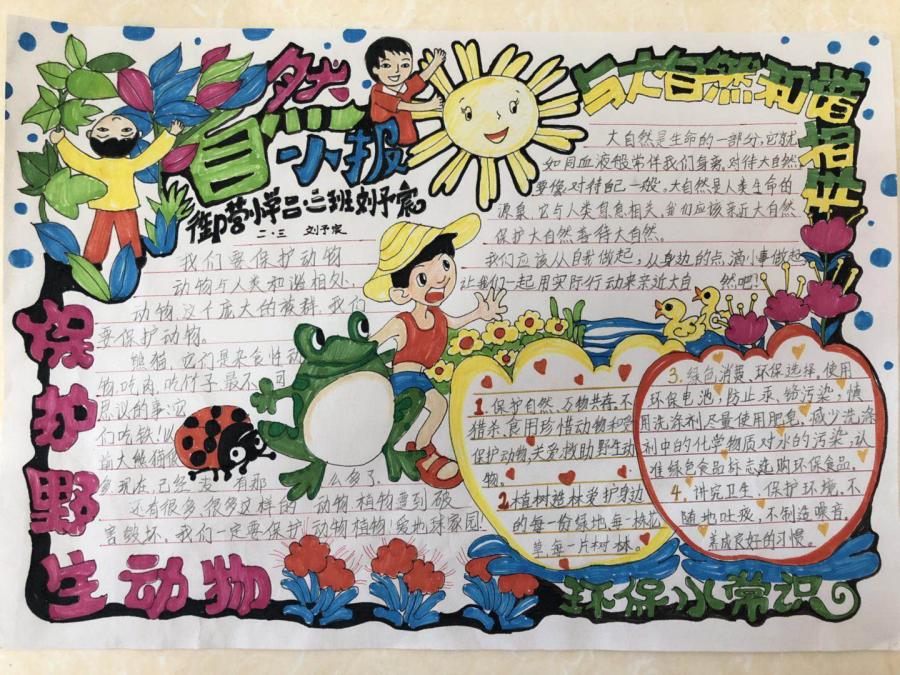 自然
小报
二·三 刘予宸
与大自然和谐
共相处
大自然是生命的一部分,它就
如同血液般常伴我们身旁。对待大自然
要像对待自己一般。大自然是人类生命的
源泉,它与人类息息相关,我们应该亲近大自然
保护大自然善待大自然。
我们应该从自我做起,从身边的点滴小事做起
让我们一起用实际行动来亲近大自 然吧!
我们要保护动物
动物与人类和谐相处,
动物,这个庞大的族群,我们
要保护动物。
熊猫,它们是杂食性动
物吃肉,吃竹子,最不 可
思议的事,它
们吃铁!以
前大熊猫很
多现在,已经 没 有那 么多了
还有很多,很多这样的 动物,植物遭到破
害毁坏。我们一定要保护 动物植物!爱地球家园!
保护野生动物
1.保护自然、万物共存,不
猎杀、食用珍惜动物和受
保护动物,关爱救助野生动
物。
2.植树造林爱护身边
的每一份绿地,每一枝花
草,每一片树林。
3.绿色消费、环保选择,使用
环保电池,防止汞、铬污染,慎
用洗涤剂,尽量使用肥皂,减少洗涤
剂中的化学物质对水的污染,认
准绿色食品标志选购环保食品。
4.讲究卫生,保护环境,不
随地吐痰,不制造噪音,
养成良好的习惯。
环保小常识